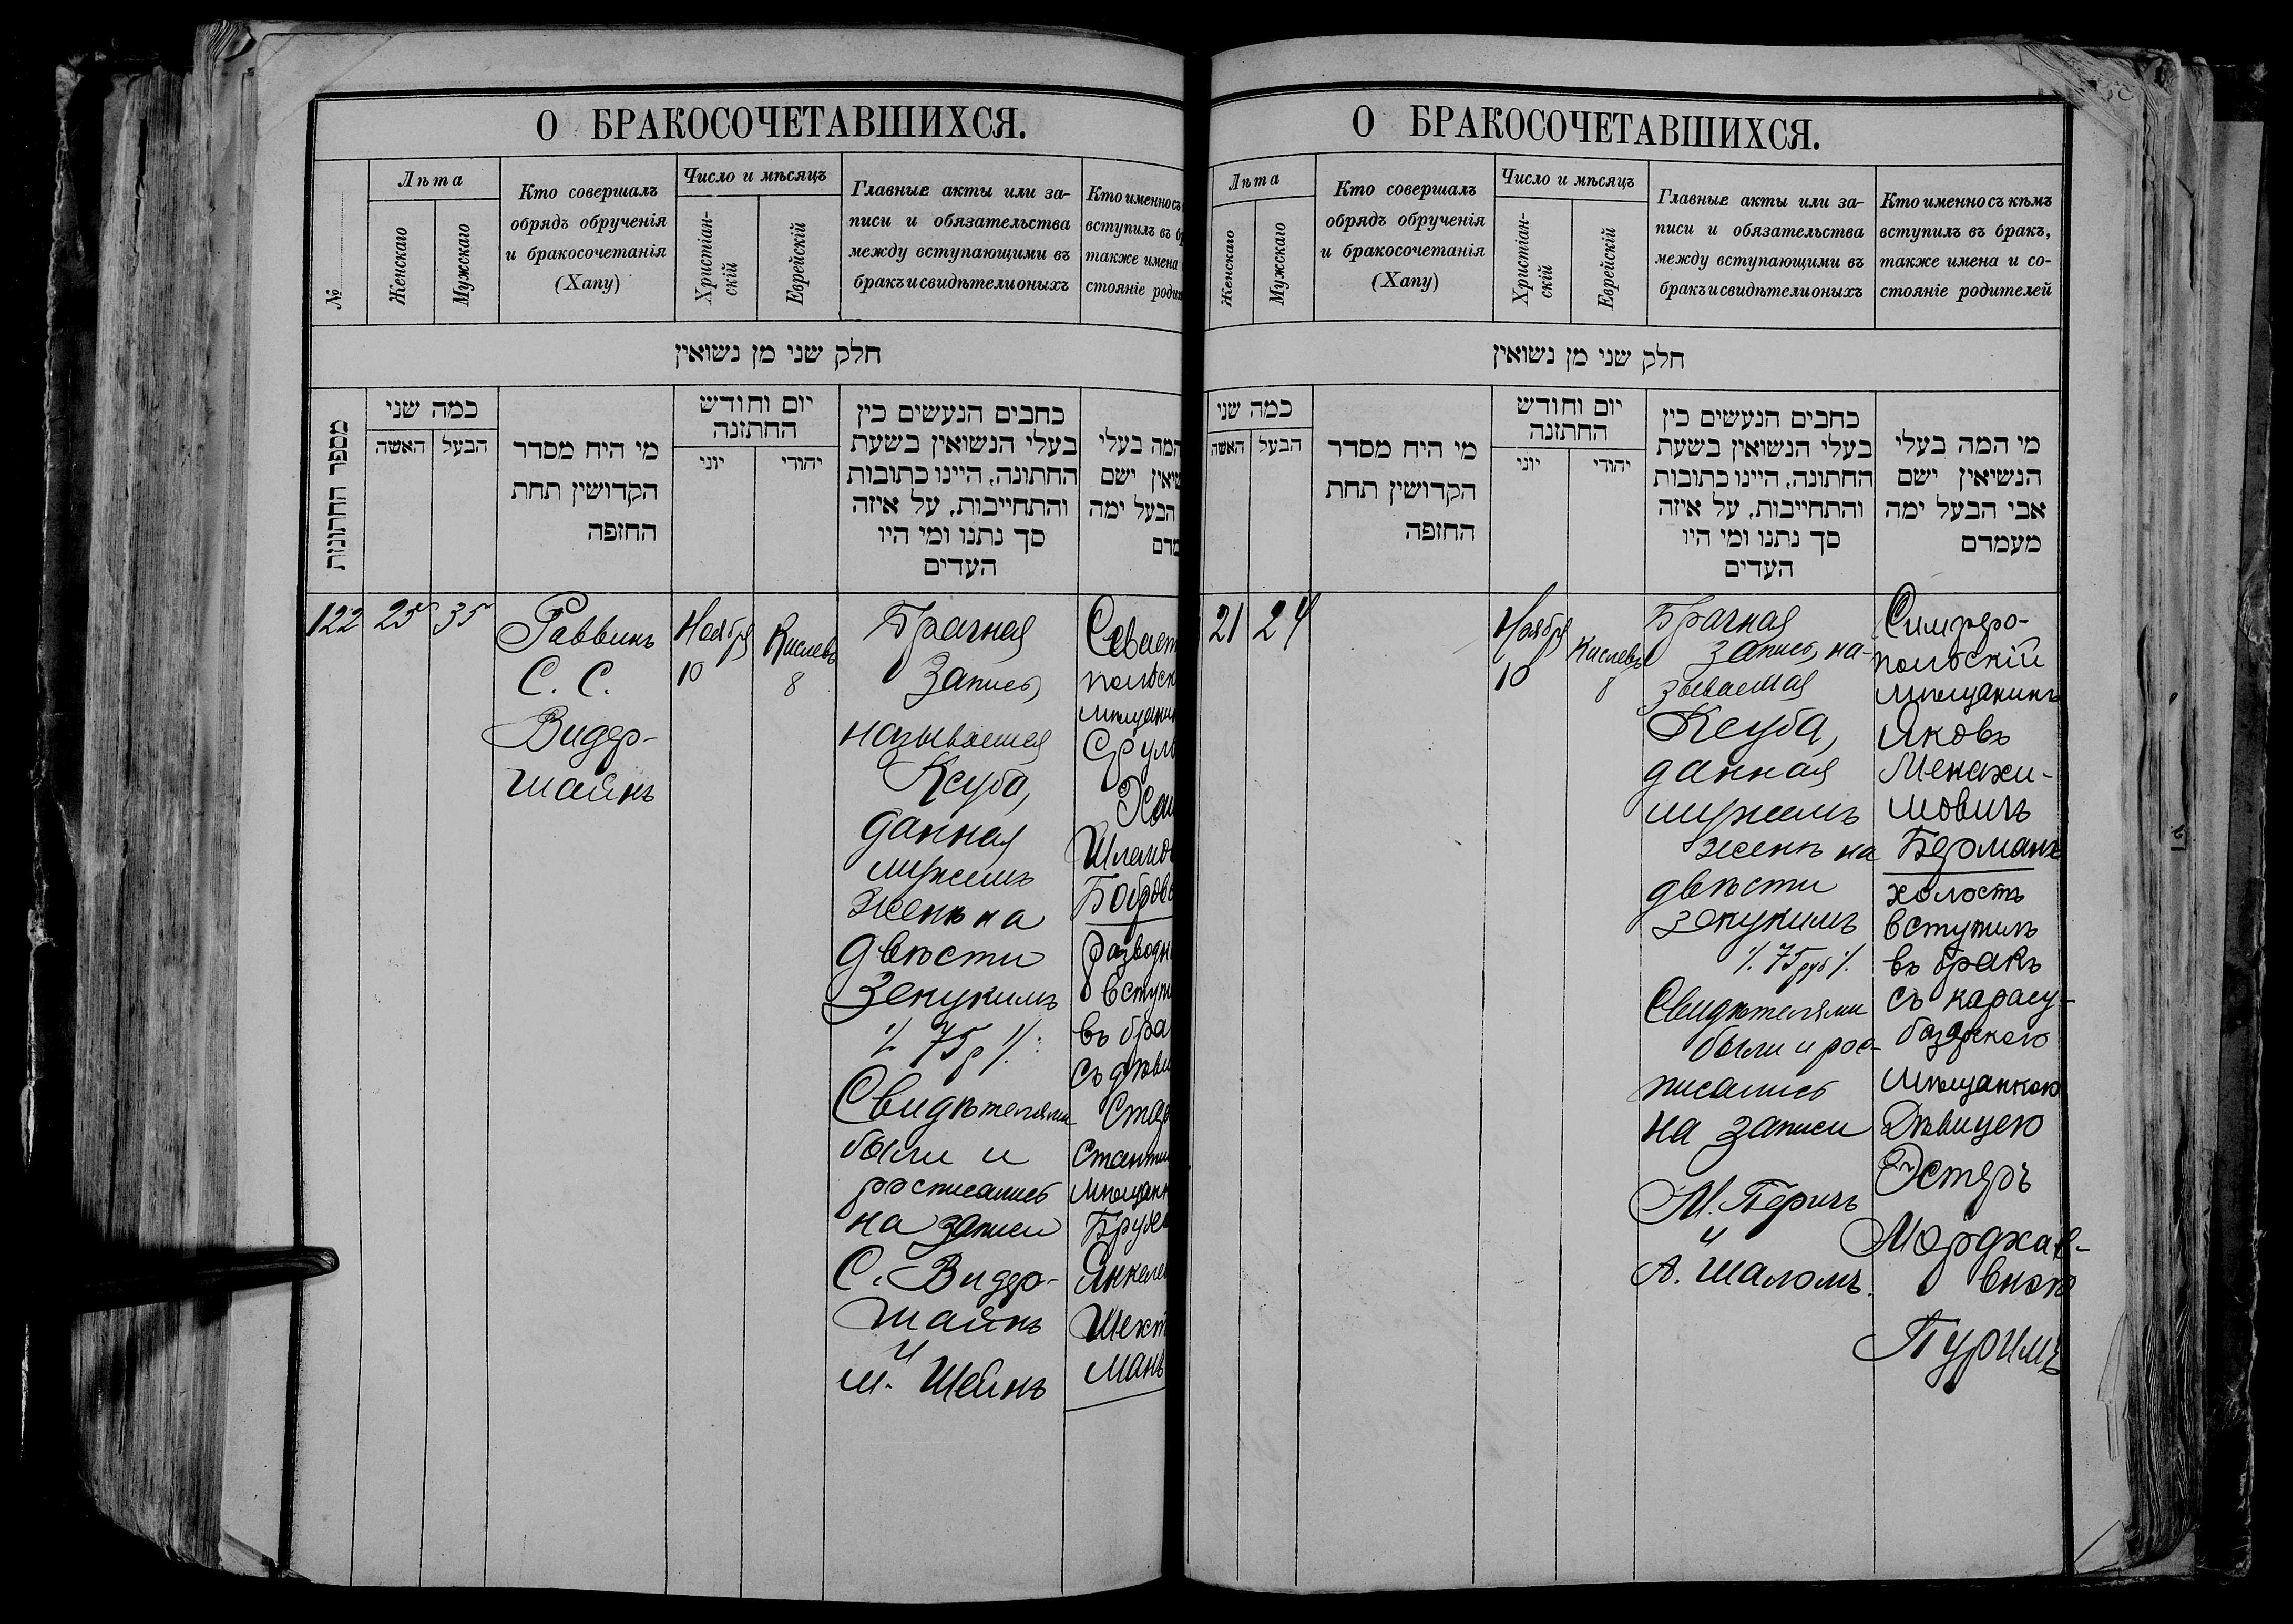 О БРАКОСОЧЕТАВШИХСЯ.
№
Лѣта
Женскаго
Мужскаго
Кто совершалъ
обрядъ обрученія
и бракосочетанія
(Хапу)
Число и мѣсяцъ
Христіан-
скій
Еврейскій
Главные акты или за-
писи и обязательства
между вступающими въ
бракъ и свидѣтели оныхъ
Кто именно съ
вступилъ въ бр
также имена
стояніе роди
חלק שני מן נשואין
מספר החתונות
כמה שני
האשה
הבעל
מי היח מסדר
הקדושין תחת
החופה
יום וחודש
החתונה
יוני
יהודי
כחבים הנעשים כין
בעלי הנשואין בשעת
החתונה, היינו כתובות
והתחייבות, על איזה
סך נתנו ומי היו
העדים
המה בעלי
שיאין ישם
הבעל ימה
מדם
122
25
35
Раввинъ
С. С.
Видер-
шайнъ
Ноября
10
Кислевъ
8
Брачная
Запись,
называемая
Ксуба,
данная
мужемъ
женѣ на
двѣсти
Зекукимъ
/. 75 р /.
Свидѣтелями
были и
росписались
на записи
С. Видер-
шайнъ
и
Ш. Шейнъ
Севаст
польск
мѣщани
Сруль
Хаи
Шлемо
Бобров
разводн
вступи
въ бра
съ дѣви
Стар
стантин
мѣщанк
Брухе
Янкеле
Шехт
манъ
О БРАКОСОЧЕТАВШИХСЯ.
Лѣта
Женскаго
Мужскаго
Кто совершалъ
обрядъ обрученія
и бракосочетанія
(Хапу)
Число и мѣсяцъ
Христіан-
скій
Еврейскій
Главные акты или за-
писи и обязательства
между вступающими въ
бракъ и свидѣтели оныхъ
Кто именно съ кѣмъ
вступилъ въ бракъ,
также имена и со-
стояніе родителей
חלק שני מן נשואין
כמה שני
האשה
הבעל
מי היח מסדר
הקדושין תחת
החופה
יום וחודש
החתונה
יוני
יהודי
כחבים הנעשים כין
בעלי הנשואין בשעת
החתונה, היינו כתובות
והתחייבות, על איזה
סך נתנו ומי היו
העדים
מי המה בעלי
הנשיאין ישם
אבי הבעל ימה
מעמדם
21
24
Ноября
10
Кислевъ
8
Брачная
запись, на-
зываемая
Ксуба,
данная
мужемъ
женѣ на
двѣсти
зекукимъ
/. 75 руб /.
Свидѣтелями
были и рос-
писались
на записи
М. Перичъ
и
А. Шаломъ.
Симферо-
польскій
мѣщанинъ
Яковъ
Менахи-
мовичъ
Берманъ
холостъ
вступилъ
въ бракъ
съ карасу-
базарскою
мѣщанкою
Дѣвицею
Эстеръ
Мордхае-
вною
Пуримъ